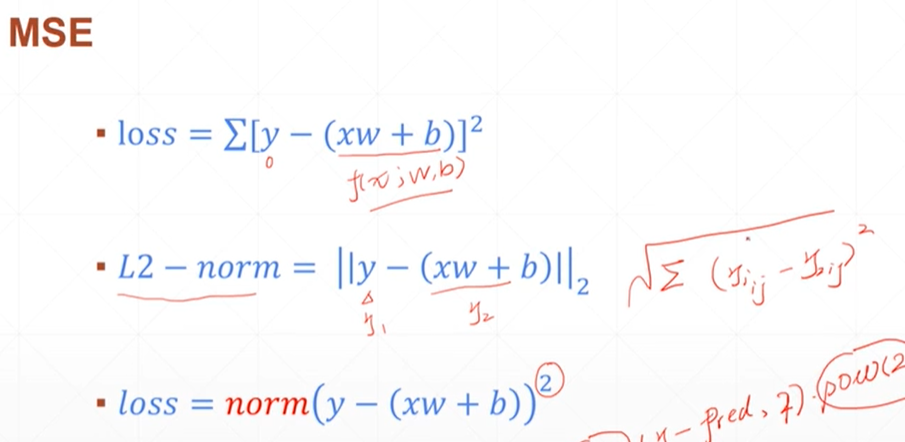 MSE
▪ loss = Σ[y − (xw + b)]²
f(x; w, b)
▪ L2 − norm = ||y − (xw + b)||₂
√Σ (y₁ij − y₂ij)²
y₁ y₂
▪ loss = norm(y − (xw + b))²
pred, 2).pow(2